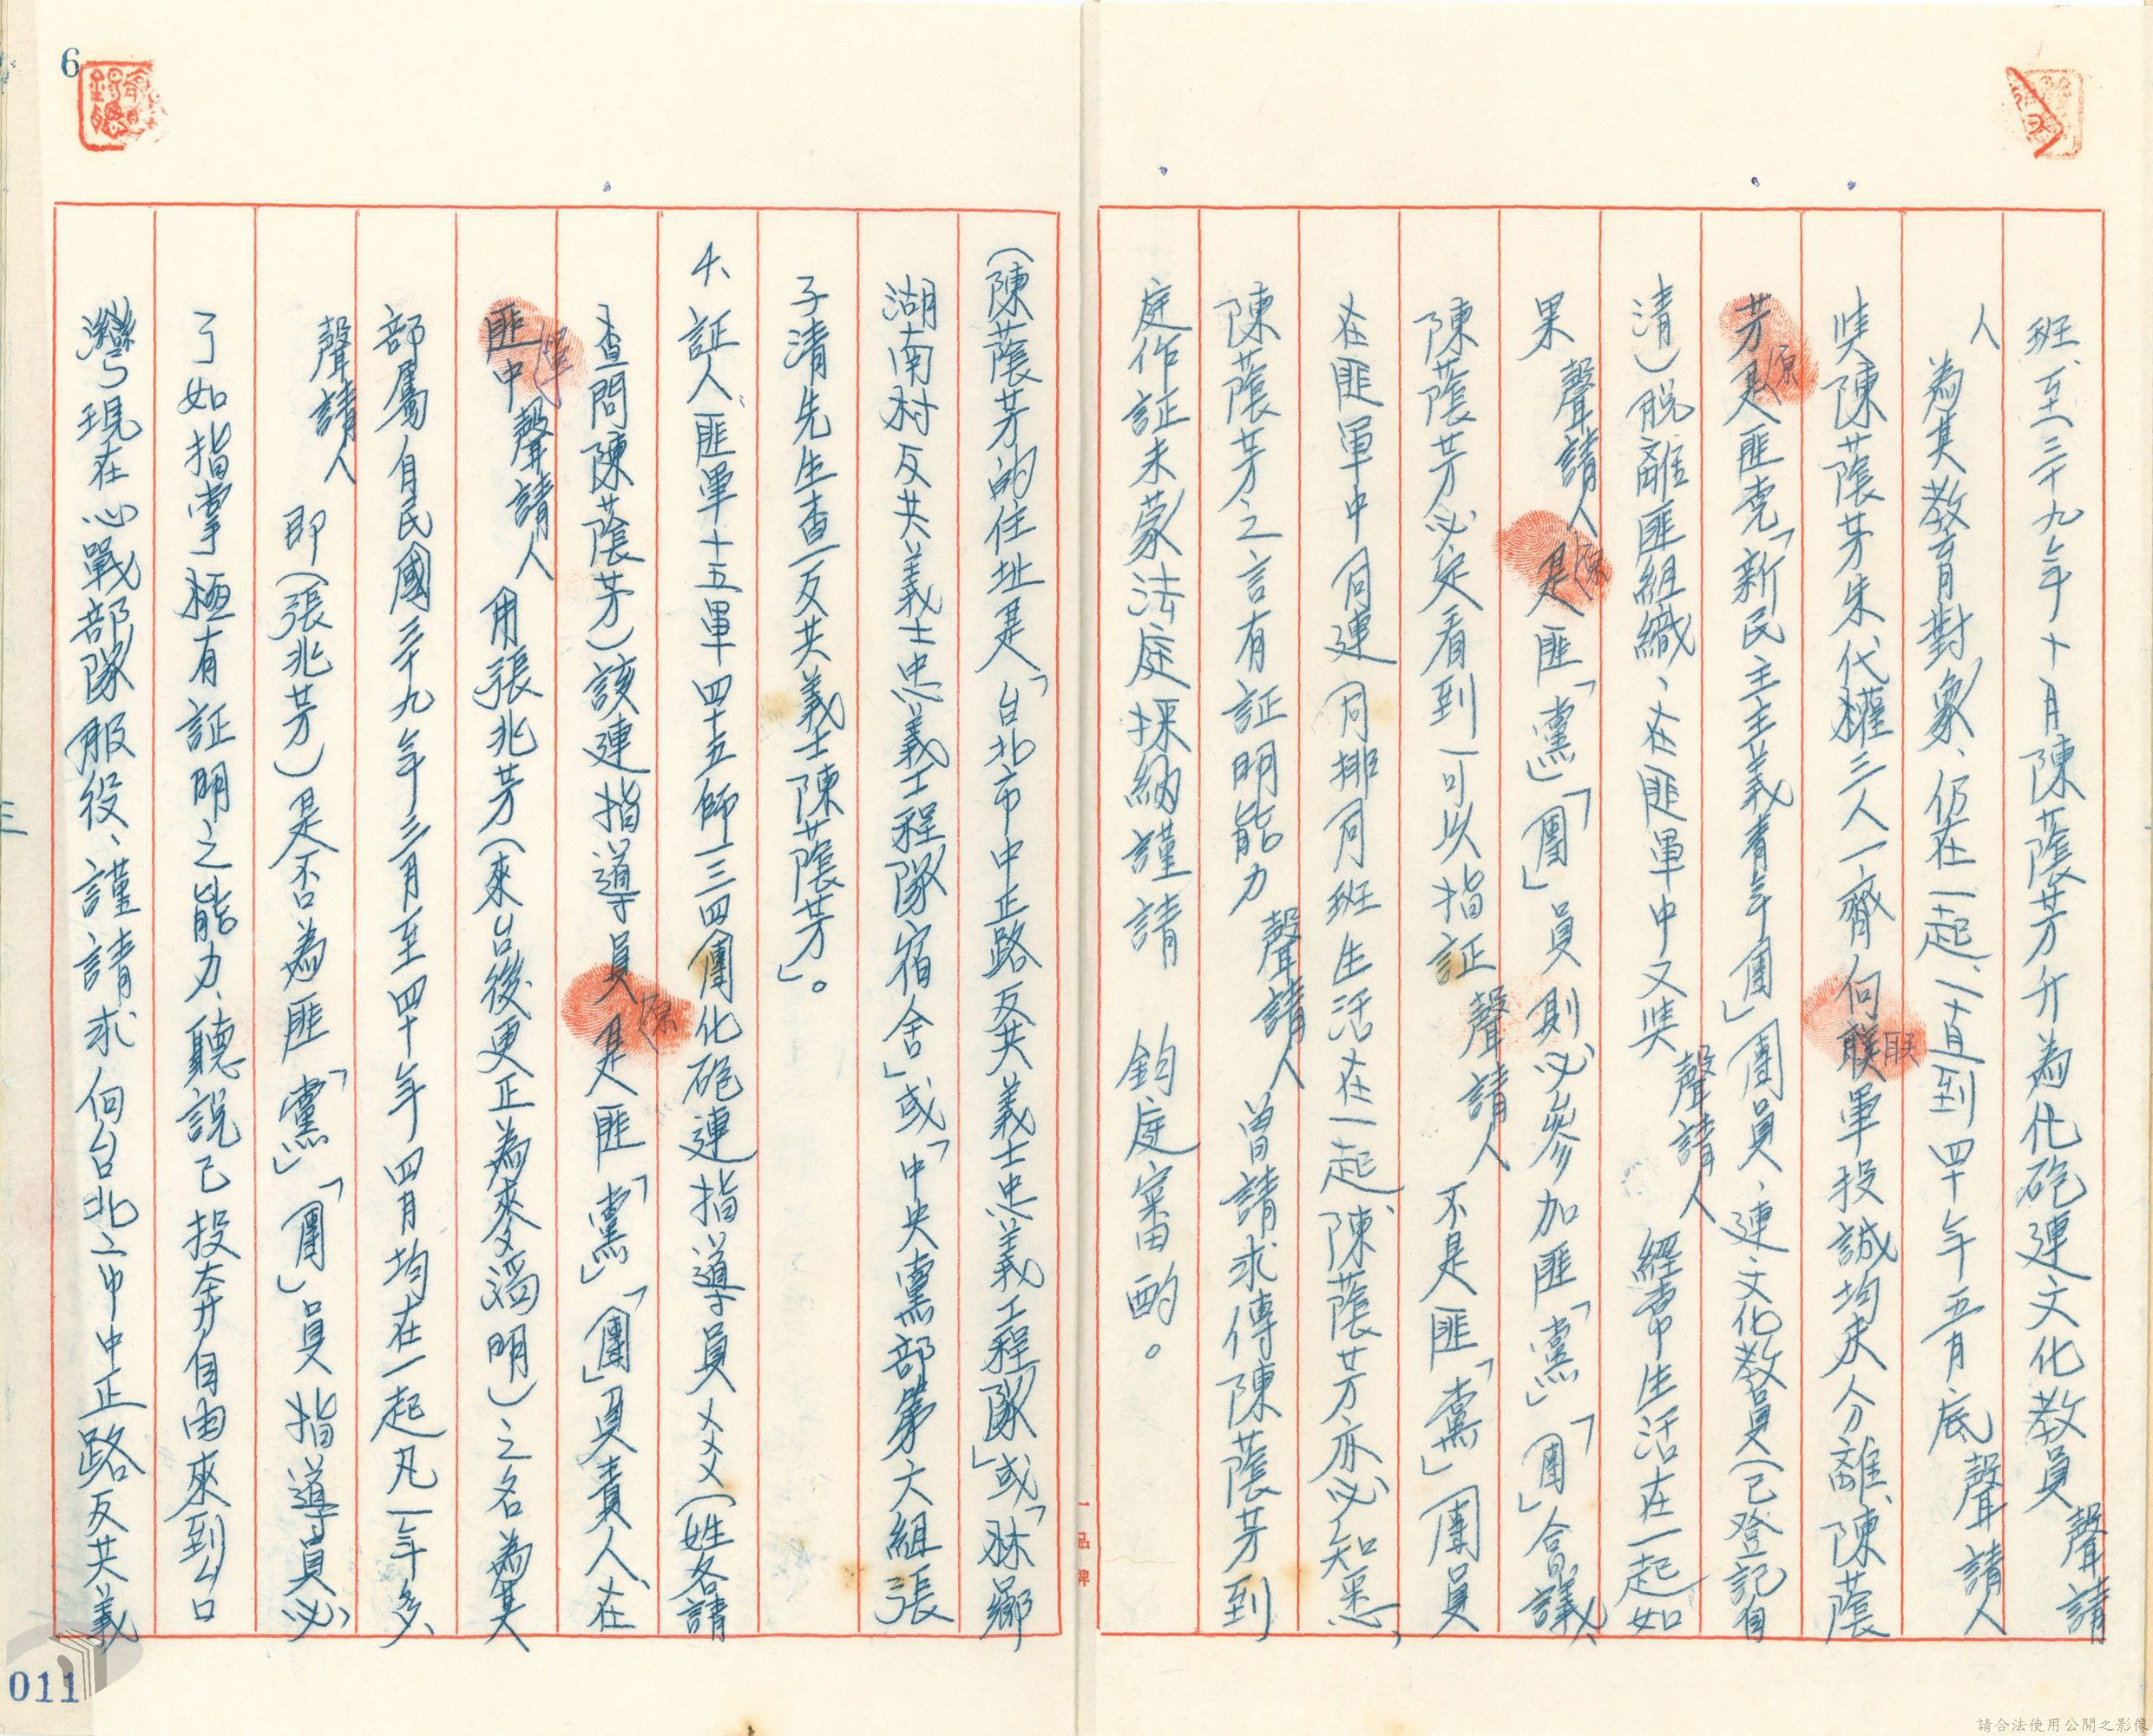 班、至三十九年十月陳蔭芳升為化砲連文化教員聲請
人為其教育對象、仍在一起、一直到四十年五月底聲請人
與陳蔭芳朱代權三人一齊向聯軍投誠均未分離、陳蔭
芳是匪党「新民主主義青年團」團員、連文化教員(已登記自
清)脱離匪組織、在匪軍中又與聲請人經常生活在一起如
果聲請人是匪「黨」「團」員則必參加匪「黨」「團」會議、
陳蔭芳必定看到一可以指証聲請人不是匪「黨」團員
在匪軍中同連同排同班生活在一起、陳蔭芳亦必知悉、
陳蔭芳之言有証明能力聲請人曾請求傳陳蔭芳到
庭作証未蒙法庭採納謹請 鈞庭審酌。
(陳蔭芳的住址是「台北市中正路反共義士忠義工程隊」或「林鄉
湖南村反共義士忠義工程隊宿舍」或「中央黨部第六組張
子清先生查一反共義士陳蔭芳」。
4、証人匪軍十五軍四十五師一三四團化砲連指導員××× (姓名請
查問陳蔭芳)該連指導員是匪「黨」「團」負責人、在
匪中聲請人用張兆芳(來台後更正為麥滔明)之名為其
部屬自民國三十九年三月至四十年四月均在一起凡一年多、
聲請人即(張兆芳)是否為匪「黨」「團」員指導員必
了如指掌極有証明之能力、聽說已投奔自由來到台
灣現在心戰部隊服役、謹請求向台北市中正路反共義
6
011
三
一品牌
原
原
原
聯
請合法使用公開之影像